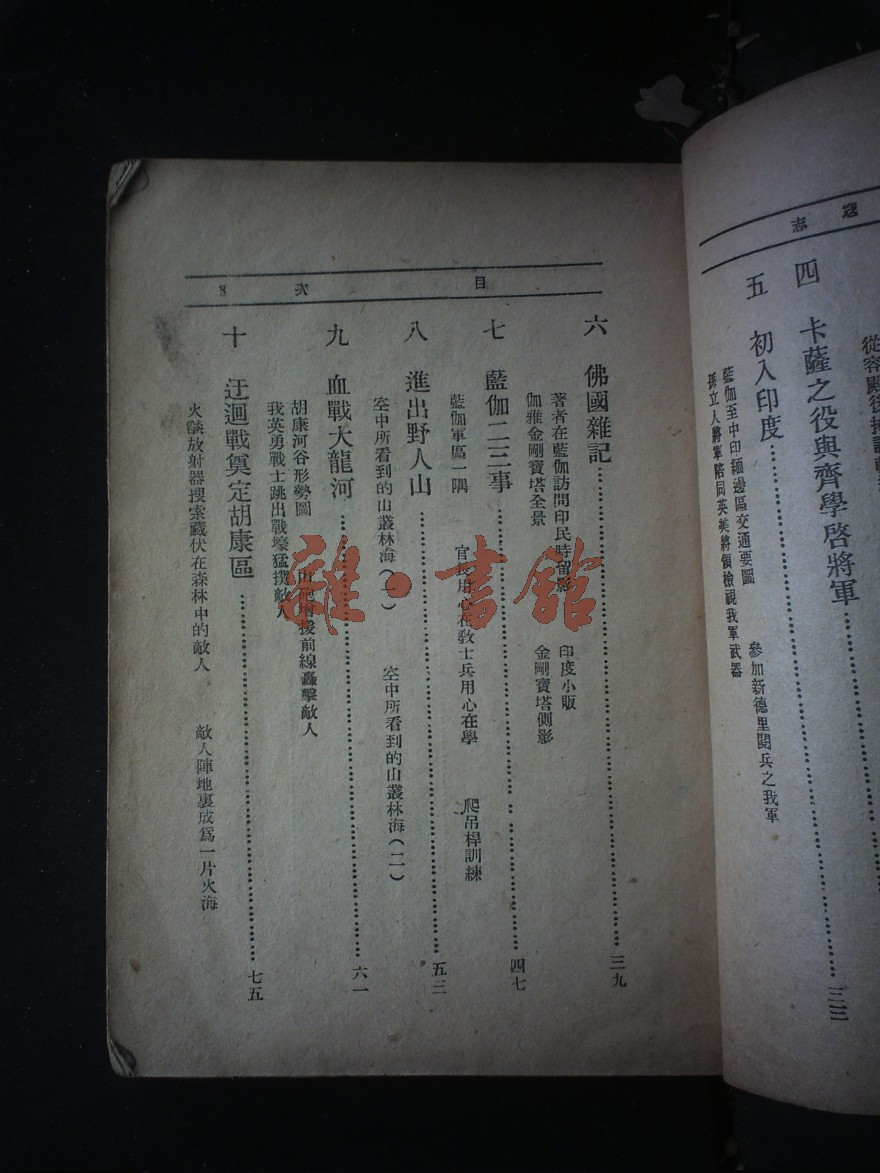 寇志
從容殿後掩護
四 卡薩之役與齊學啓將軍……
五 初入印度……三三
藍伽至中印緬邊區交通要圖 參加新德里閱兵之我軍
孫立人將軍陪同英美將領檢視我軍武器
目次 8
六 佛國雜記……三九
著者在藍伽訪問印民時留影 印度小販
伽雅金剛寶塔全景 金剛寶塔側影
七 藍伽二三事……四七
藍伽軍區一隅 官長用心在敎士兵用心在學 爬吊桿訓練
八 進出野人山……五三
空中所看到的山叢林海(一) 空中所看到的山叢林海(二)
九 血戰大龍河……六一
胡康河谷形勢圖 接前線轟擊敵人
我英勇戰士跳出戰壕猛撲敵人
十 迂迴戰奠定胡康區……七五
火燄放射器搜索藏伏在森林中的敵人 敵人陣地裏成爲一片火海
雜·書館